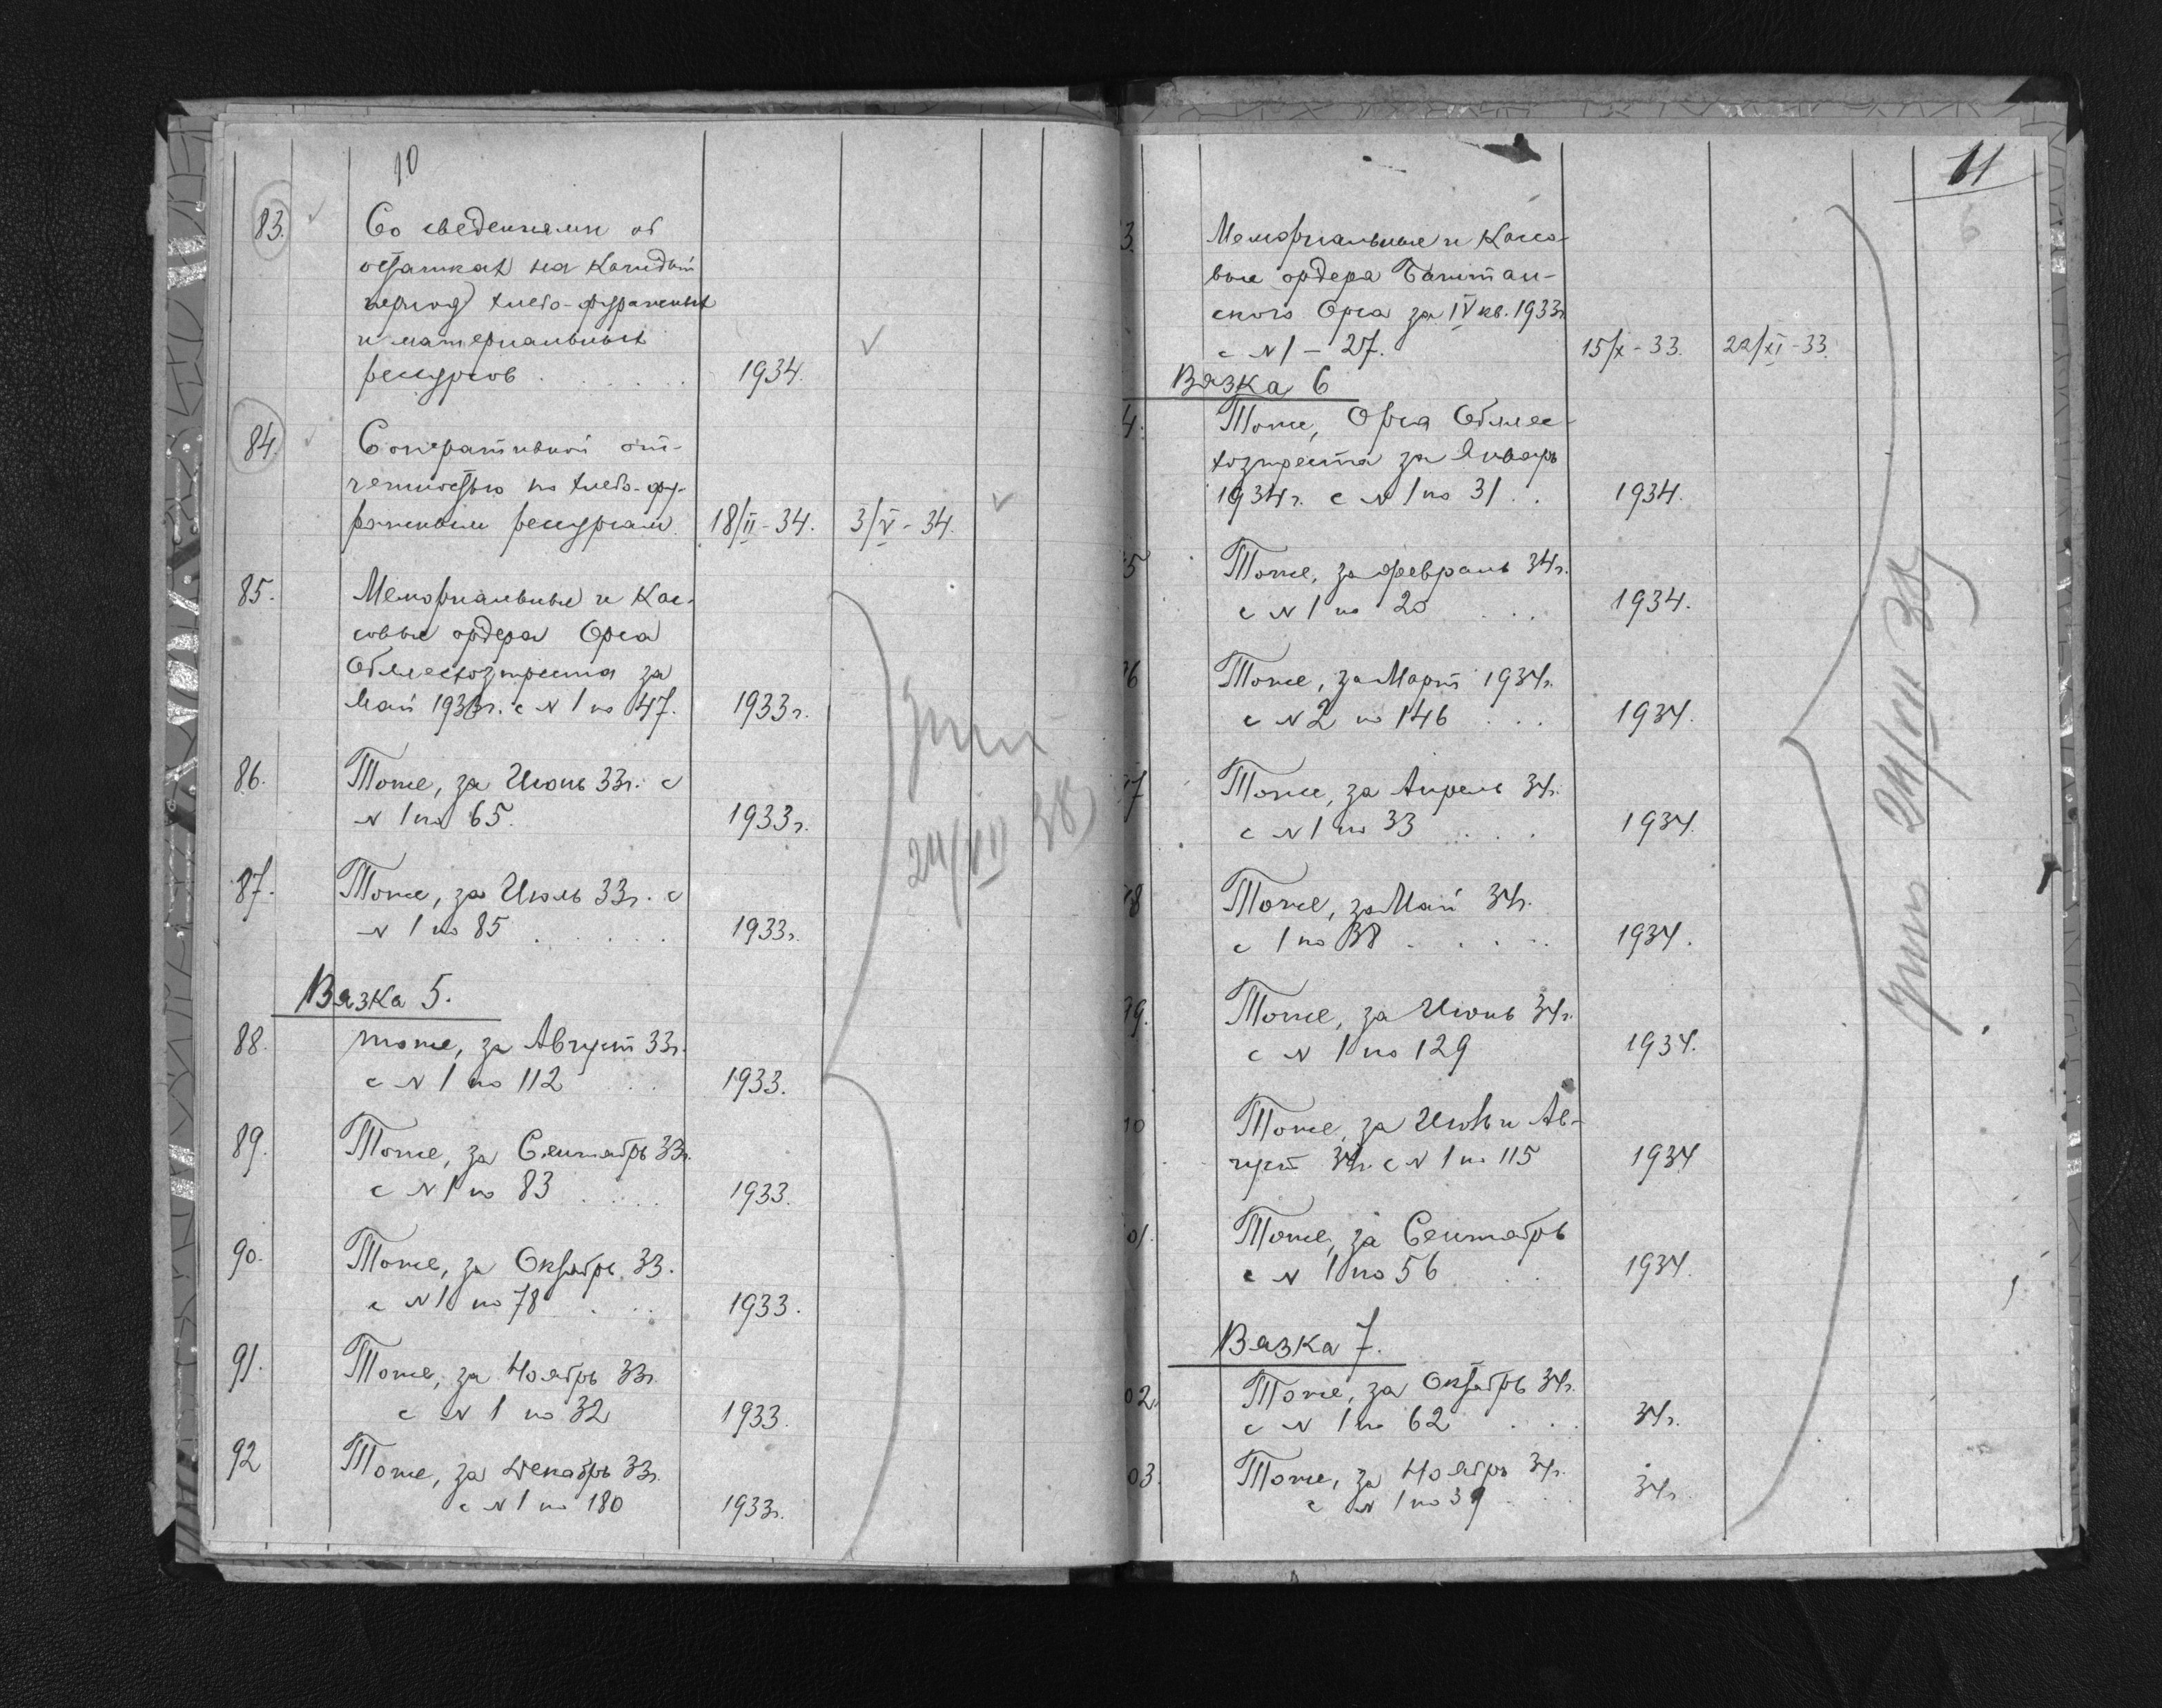 10
83. Со сведениями об
остатках на каждый
период хлебо-фуражных
и материальных
ресурсов . . . . . . 1934.
84. С оперативной от-
четностью по хлебо-фу-
ражным ресурсам. 18/II-34. 3/V-34.
85. Мемориальные и Кас-
совые ордера Орса
Облместхозтреста за
Май 1933г. с N 1 по 47. 1933г.
86. Тоже, за Июнь 33г. с
N 1 по 65. 1933г.
87. Тоже, за Июль 33г. с
N 1 по 85 . . . . . 1933г.
Вязка 5.
88. тоже, за Август 33г.
с N 1 по 112 . . . 1933.
89. Тоже, за Сентябрь 33г.
с N 1 по 83 . . . . 1933.
90. Тоже, за Октябрь 33.
с N 1 по 78 . . . 1933.
91. Тоже, за Ноябрь 33г.
с N 1 по 32 1933.
92 Тоже, за Декабрь 33г.
с N 1 по 180 1933г.
24/VII 38
11
6
3. Мемориальные и Кассо-
вые ордера Баштан-
ского Орса за IV кв. 1933г
с N 1 - 27. 15/X-33. 22/XI-33.
Вязка 6
4. Тоже, Орса Облмест-
хозтреста за Январь
1934г. с N 1 по 31 . . 1934.
5 Тоже, за февраль 34г.
с N 1 по 20 . . . 1934.
96 Тоже, за Март 1934г.
с N 2 по 146 . . . 1934.
97 Тоже, за Апрель 34г.
с N 1 по 33 . . . . 1934.
98 Тоже, за Май 34г.
с 1 по 38 . . . . . 1934.
99. Тоже, за Июнь 34г.
с N 1 по 129 1934.
10 Тоже, за Июль и Ав-
густ 34г. с N 1 по 115 1934
01. Тоже, за Сентябрь
с N 1 по 56 . . 1934.
Вязка 7.
02. Тоже, за Октябрь 34г.
с N 1 по 62 . . . 34г.
03. Тоже, за Ноябрь 34г.
с N 1 по 39 . . 34г.
24/VII 38